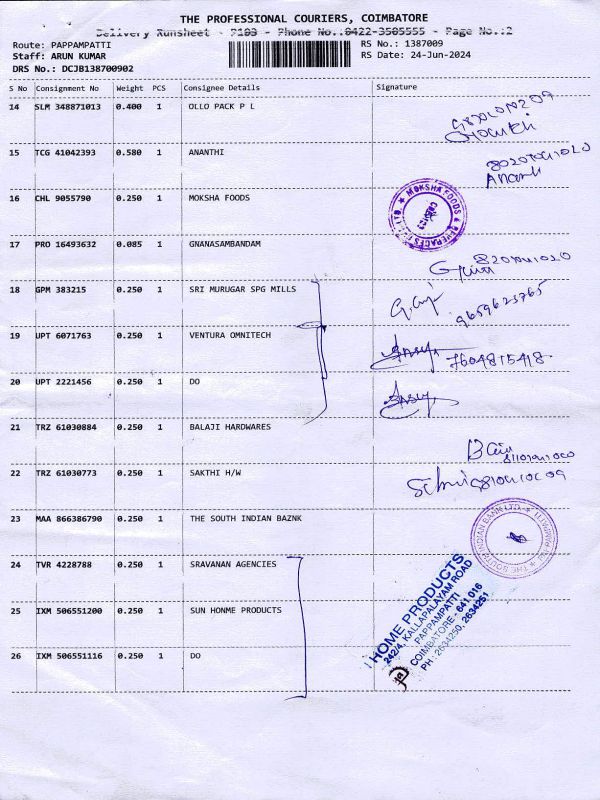 THE PROFESSIONAL COURIERS, COIMBATORE
Delivery Runsheet - P103 - Phone No.:0422-3505555 - Page No.:2
Route: PAPPAMPATTI
Staff: ARUN KUMAR
DRS No.: DCJB138700902
RS No.: 1387009
RS Date: 24-Jun-2024
S No Consignment No Weight PCS Consignee Details Signature
14 SLM 348871013 0.400 1 OLLO PACK P L
15 TCG 41042393 0.580 1 ANANTHI
16 CHL 9055790 0.250 1 MOKSHA FOODS
MOKSHA FOODS & BEVERAGES
17 PRO 16493632 0.085 1 GNANASAMBANDAM
18 GPM 383215 0.250 1 SRI MURUGAR SPG MILLS
9659623765
19 UPT 6071763 0.250 1 VENTURA OMNITECH
7604815418
20 UPT 2221456 0.250 1 DO
21 TRZ 61030884 0.250 1 BALAJI HARDWARES
22 TRZ 61030773 0.250 1 SAKTHI H/W
23 MAA 866386790 0.250 1 THE SOUTH INDIAN BAZNK
THE SOUTH INDIAN BANK LTD.
24 TVR 4228788 0.250 1 SRAVANAN AGENCIES
25 IXM 506551200 0.250 1 SUN HONME PRODUCTS
26 IXM 506551116 0.250 1 DO
HOME PRODUCTS
242/4, KALLAPALAYAM ROAD
PAPPAMPATTI
COIMBATORE - 641 016
PH: 2634250, 2634251